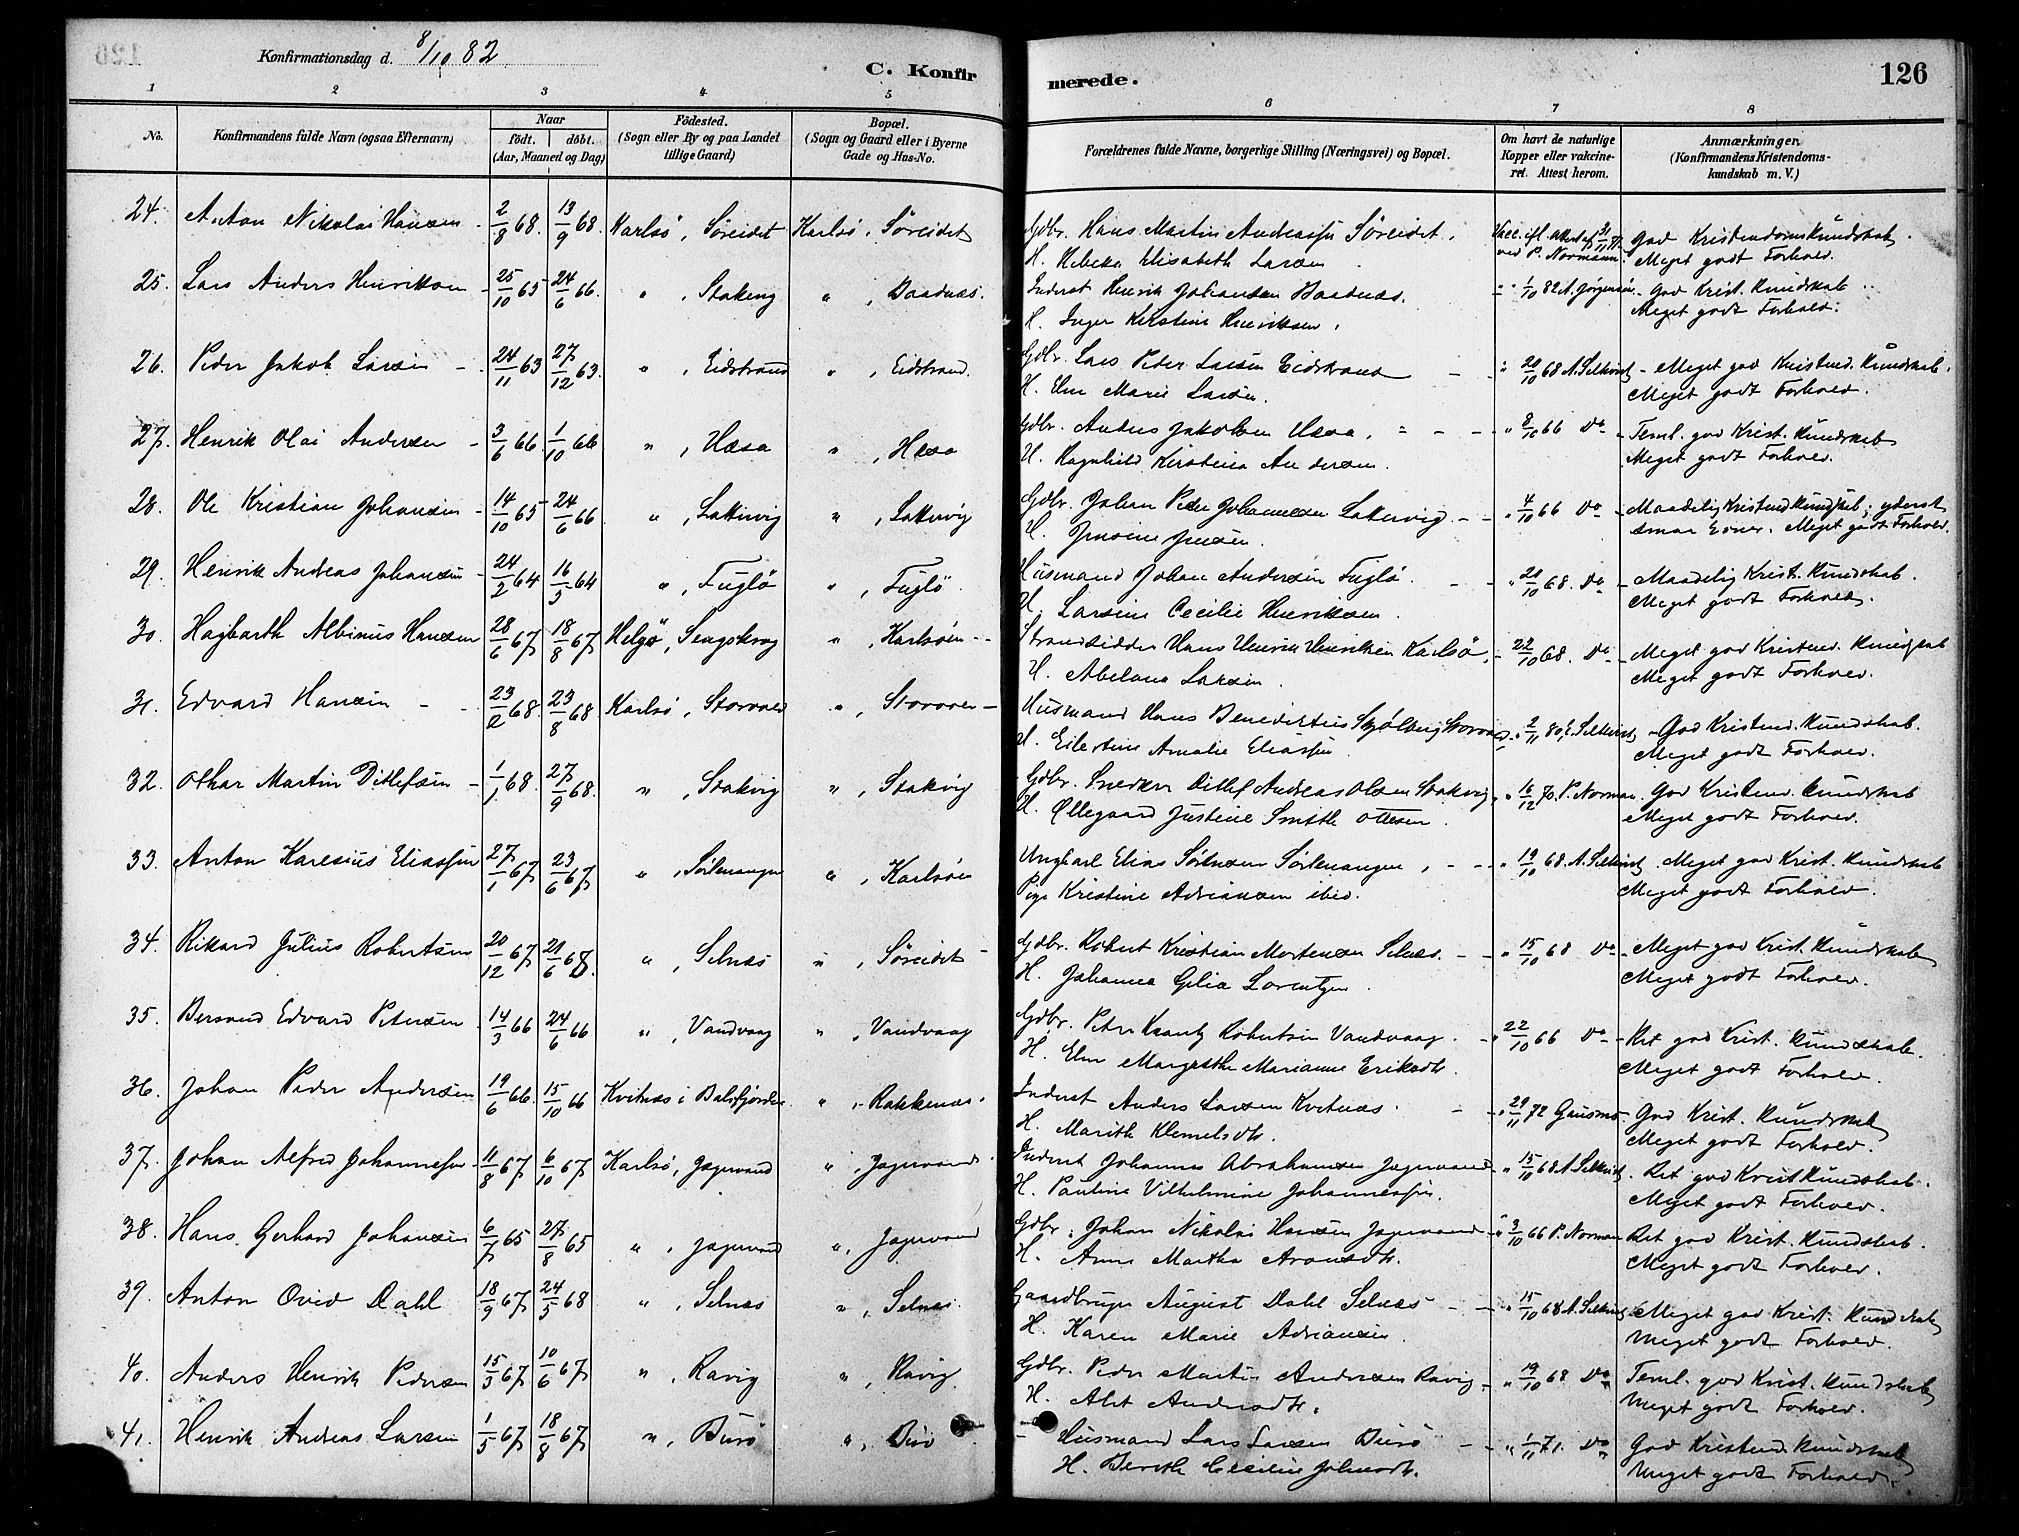 Konfirmationsdag d. 8/10 82
C. Konfirmerede.
126
1 2 3 4 5 6 7 8
No.
Konfirmandens fulde Navn (ogsaa Efternavn)
Naar
födt. döbt.
(Aar, Maaned og Dag)
Födested.
(Sogn eller By og paa Landet
tillige Gaard)
Bopæl.
(Sogn og Gaard eller i Byerne
Gade og Hus-No.
Forældrenes fulde Navne, borgerlige Stilling (Næringsvei) og Bopæl.
Om havt de naturlige
Kopper eller vakcine-
ret. Attest herom.
Anmærkninger.
(Konfirmandens Kristendoms-
kundskab m. V.)
24. Anton Nikolai Hansen 2/8 68. 13/9 68. Karlsö, Söreidet Karlsö, Söreidet Gdbr. Hans Martin Andreassen Söreidet. Vacc. ifl. Attest af P. Normann. God Kristendomskundskab.
H. Rebeka Elisabeth Larsen Meget godt Forhold.
25. Lars Anders Henriksen 25/10 65 24/6 66. " , Stakeng " , Baadnæs. Inderst Henrik Johansen Baadnæs. 1/10 82 A. Jörgensen God Krist. Kundskab
H. Inger Kirstine Henriksen. Meget godt Forhold.
26. Peder Jakob Larsen 24/11 63 27/12 63. " , Eidstrand " , Eidstrand. Gdbr. Lars Peder Larsen Eidstrand " 20/10 68 A. Selkvist Meget god Kristend. Kundskab.
H. Elen Marie Larsen. Meget godt Forhold.
27. Henrik Olai Andersen 3/6 66. 1/10 66 " , Hæsa " , Hæsa Gdbr. Anders Jakobsen Hæsa. " 8/10 66 Do Teml. god Krist. Kundskab
H. Ragnhild Kirstina Andersen. Meget godt Forhold.
28. Ole Kristian Johansen 14/10 65 24/6 66. " , Lattervig " , Lattervig Gdbr. Johan Peder Johannesen Lattervig " 4/10 66 Do Maadelig Kristendkundskab; yderst
H. Jensen. smaa Evner. Meget godt Forhold.
29. Henrik Andreas Johansen 24/2 64 16/5 64 " , Fuglö " , Fuglö Husmand Johan Andersen Fuglö. " 20/10 68. Do Maadelig Krist. Kundskab.
H. Larsine Cecilie Henriksen. Meget godt Forhold.
30. Hagbarth Albinus Hansen 28/6 67 18/8 67 Helgö, Sengskrog " , Karlsöen Strandsidder Hans Henrik Henriksen Karlsö. 22/10 68. Do Meget god Kristend. Kundskab
H. Abelone Larsen. Meget godt Forhold.
31. Edvard Hansen 23/2 68. 23/8 68 Karlsö, Storvold " , Storvold Husmand Hans Benediktus 2/11 80, E. Selkvist God Kristend. Kundskab.
H. Eilertine Amalie Eliassen Meget godt Forhold.
32. Othar Martin Ditlefsen 1/1 68. 27/9 68. " , Stakvig " , Stakvig Gdbr. Snedker Ditlef Andreas Olsen Stakvig " 16/12 70. P. Norman. God Kristend. Kundskab
H. Ollegaard Justine Smith Ottesen. Meget godt Forhold.
33. Anton Karesius Eliassen 27/1 67 23/6 67 " , Sörlenangen " , Karlsöen Ungkarl Elias Sörensen Sörlenangen, " 19/10 68. A. Selkvist. Meget god Krist. Kundskab
Pige Kristine Adriansen ibid. Meget godt Forhold.
34. Rikard Julius Robertsen 20/12 67 21/6 68. " , Selnæs " , Söreidet Gdbr. Robert Kristian Mortensen Selnæs. " 15/10 68 Do Meget god Krist. Kundskab
H. Johanna Gjelia Lorentzen. Meget godt Forhold.
35. Bersvend Edvard Petersen 14/3 66 24/6 66 " , Vandvaag " , Vandvaag Gdbr. Peter Krantz Robertsen Vandvaag. 22/10 66 Do Ret god Krist. Kundskab.
H. Elen Margrethe Marianne Eriksdtr. Meget godt Forhold.
36. Johan Peder Andersen 19/6 66. 15/10 66 Kvitnæs i Balsfjorden " , Rakkenæs. Inderst Anders Larsen Kvitnæs. 29/11 72 God Krist. Kundskab
H. Marith Klemetsdtr. Meget godt Forhold.
37. Johan Alfred Johannesen 11/8 67 6/10 67 Karlsö, Jægervand " , Jægervand. Inderst Johannes Abrahamsen Jægervand " 15/10 68 A. Selkvist. Ret god Krist Kundskab.
H. Pauline Vilhelmine Johannessen. Meget godt Forhold.
38. Hans Gerhard Johansen 6/7 65 27/8 65 " , Jægervand " , Jægervand Gdbr. Johan Nikolai Hansen Jægervand " 3/10 66 P. Norman Ret god Krist. Kundskab.
H. Anne Martha Aronsdtr. Meget godt Forhold.
39. Anton Ovid Dahl 18/9 67 24/5 68 " , Selnæs " , Selnæs. Gaardbruger August Dahl Selnæs " 15/10 68 A. Selkvist Meget god Krist. Kundskab
H. Karen Marie Adriansen. Meget godt Forhold.
40. Anders Henrik Pedersen 15/3 67 10/6 67 " , Ravig " , Ravig Gdbr. Peder Martin Andersen Ravig " 19/10 68 Do Teml. god Krist. Kundskab
H. Alet Andersdtr. Meget godt Forhold.
41. Henrik Andreas Larsen 1/5 67 18/8 67 " , Burö " , Burö Husmand Lars Larsen Burö " 1/11 71. Do God Kristend. Kundskab
H. Berith Cecilie Johnsdtr. Meget godt Forhold.